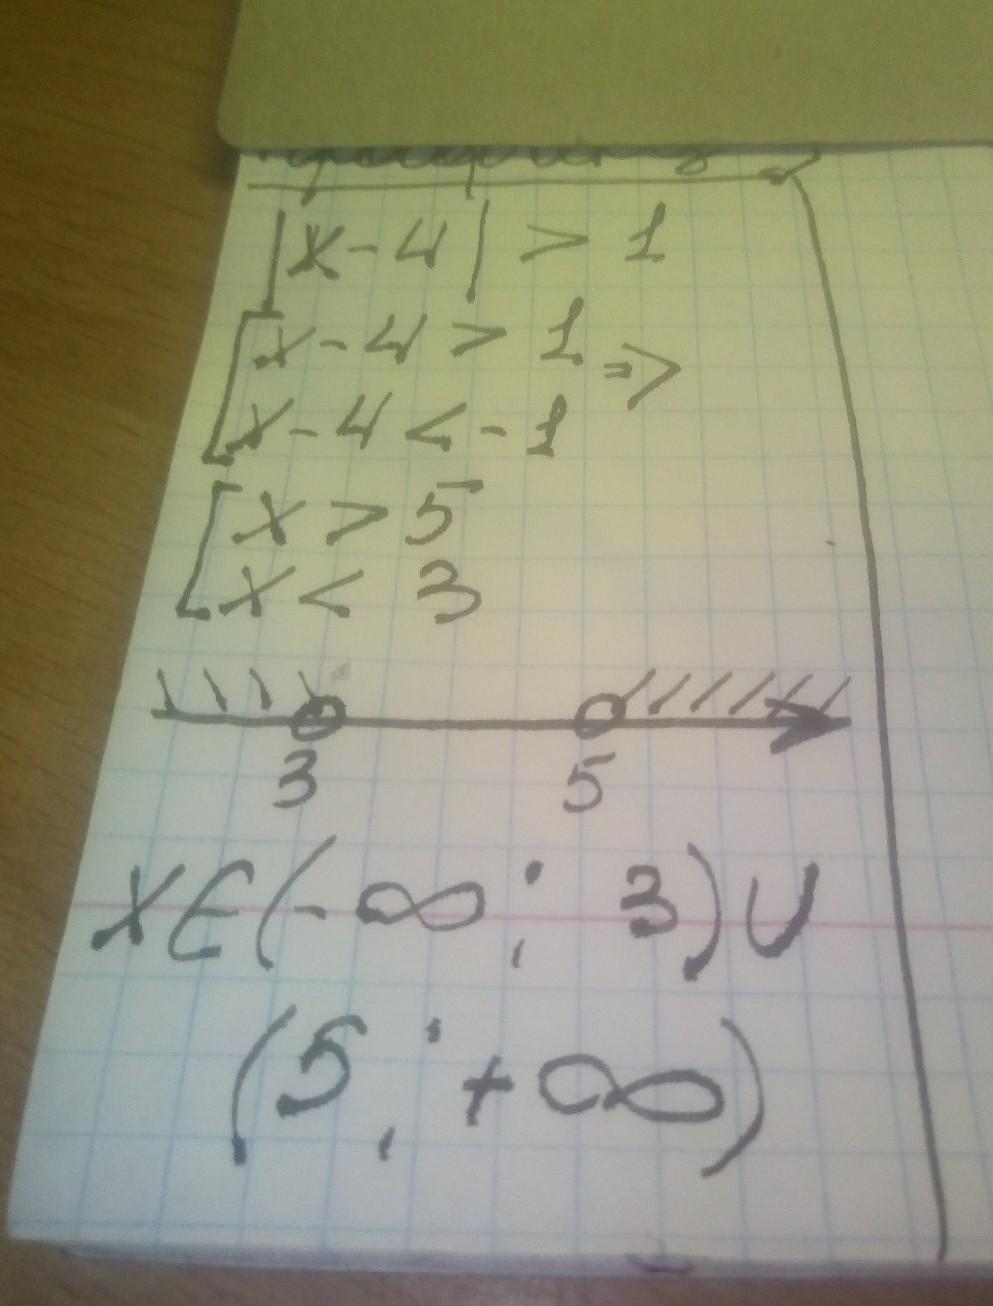 |x-4| > 1
[x-4 > 1 =>
x-4 < -1
[x > 5
x < 3
3 5
x∈(-∞; 3)∪
(5; +∞)